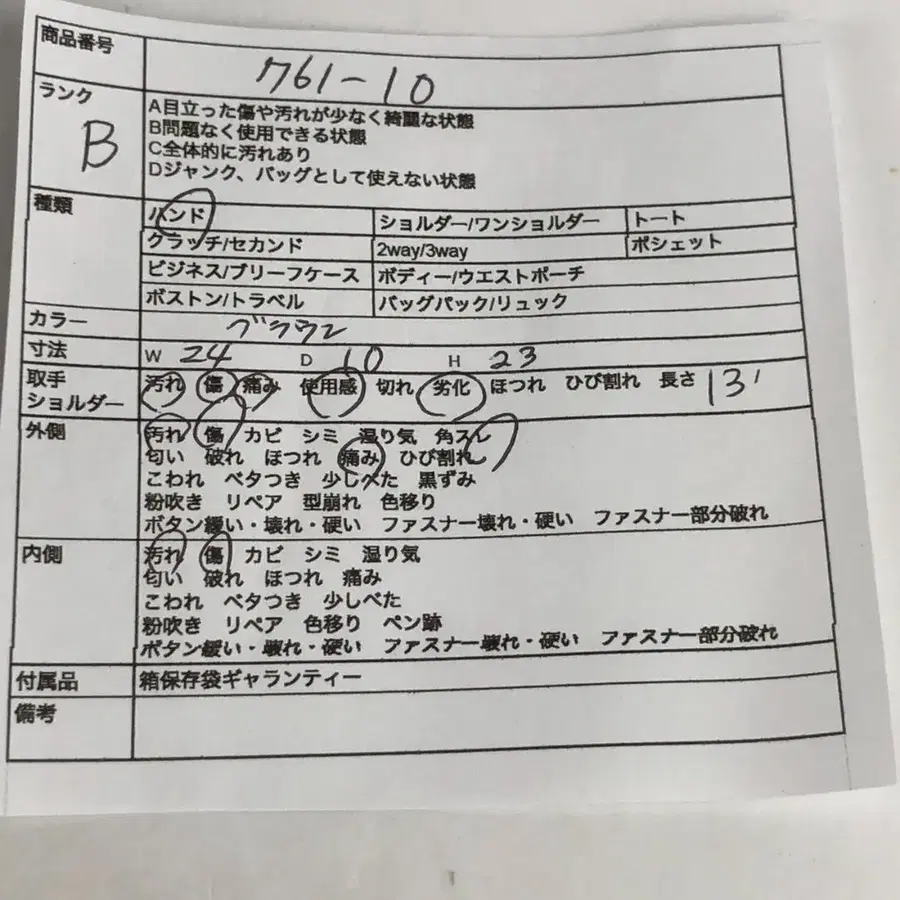 商品番号 761-10
ランク B
A目立った傷や汚れが少なく綺麗な状態
B問題なく使用できる状態
C全体的に汚れあり
Dジャンク、バッグとして使えない状態
種類 ハンド ショルダー/ワンショルダー トート
クラッチ/セカンド 2way/3way ポシェット
ビジネス/ブリーフケース ボディー/ウエストポーチ
ボストン/トラベル バッグパック/リュック
カラー ブラウン
寸法 W 24 D 10 H 23
取手 汚れ 傷 痛み 使用感 切れ 劣化 ほつれ ひび割れ 長さ 13
ショルダー
外側 汚れ 傷 カビ シミ 湿り気 角スレ
匂い 破れ ほつれ 痛み ひび割れ
こわれ ベタつき 少しべた 黒ずみ
粉吹き リペア 型崩れ 色移り
ボタン緩い・壊れ・硬い ファスナー壊れ・硬い ファスナー部分破れ
内側 汚れ 傷 カビ シミ 湿り気
匂い 破れ ほつれ 痛み
こわれ ベタつき 少しべた
粉吹き リペア 色移り ペン跡
ボタン緩い・壊れ・硬い ファスナー壊れ・硬い ファスナー部分破れ
付属品 箱保存袋ギャランティー
備考